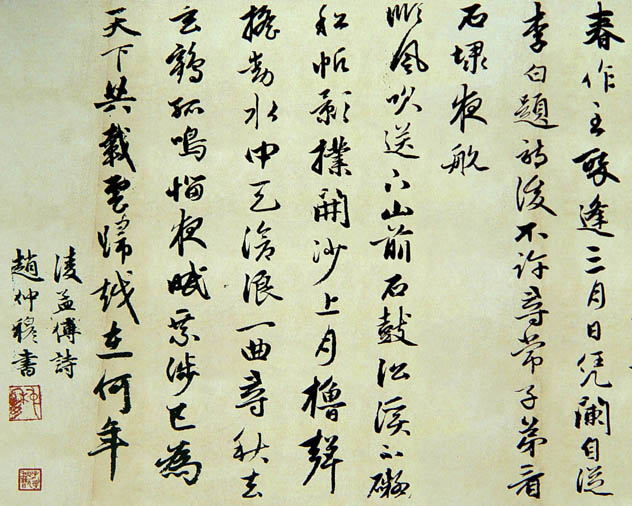 春作主逢三月日凭闌自從
李白題詩後不許尋常子弟看
石埭夜航
順風吹送下山前石鼓沿溪不礙
船帆影撲開沙上月櫓聲
搖動水中天滄浪一曲尋秋去
玄鶴孤鳴惱夜眠已為
天下共載雲歸越在何年
凌孟博詩
趙仲穆書